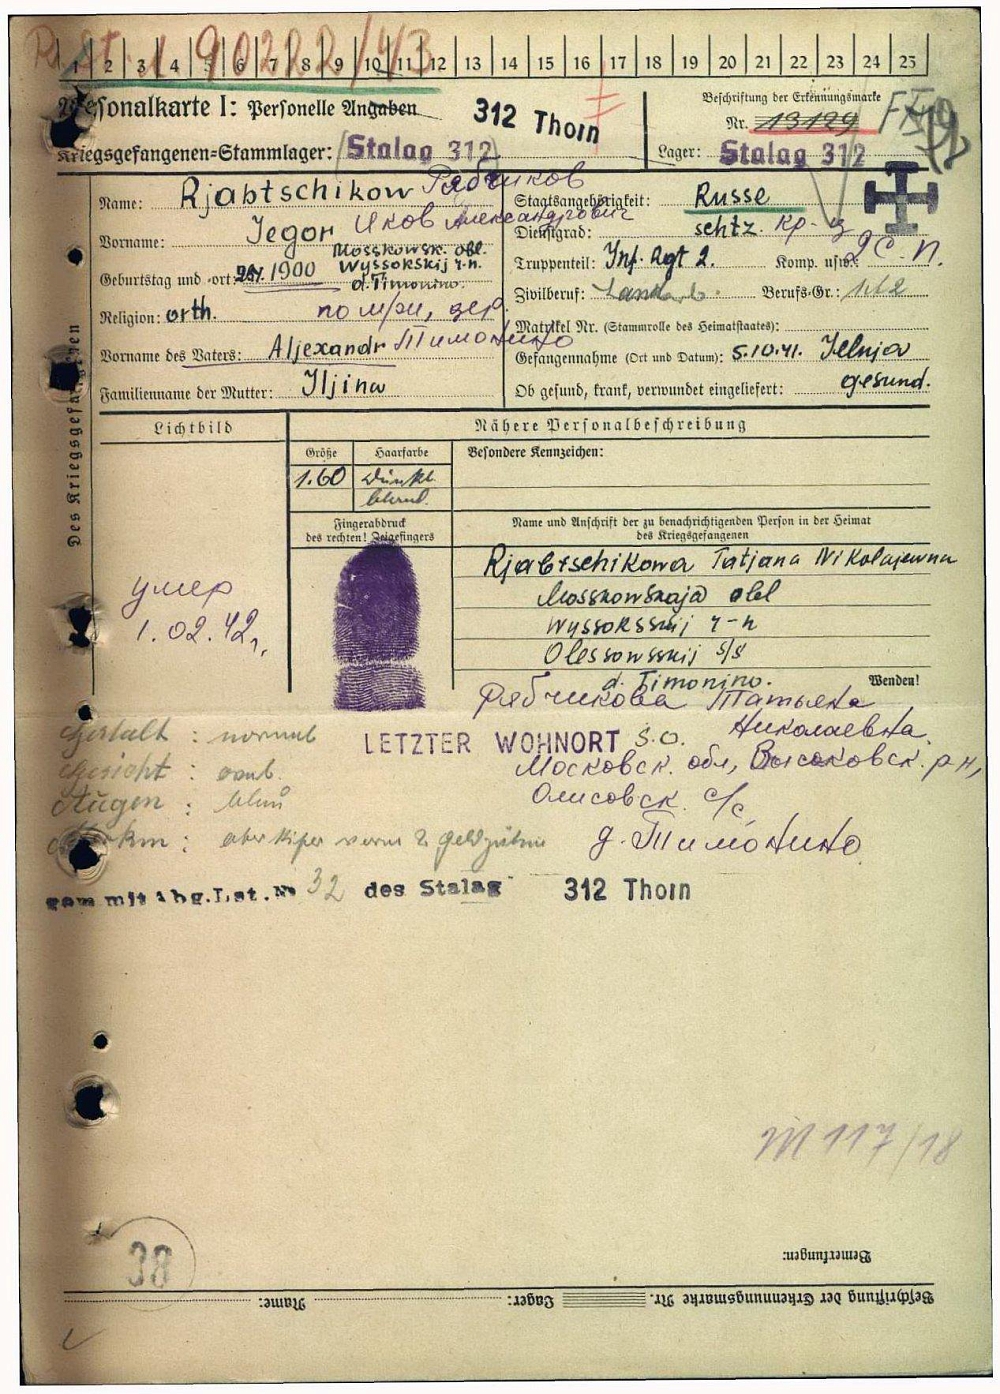 R. St. 1 90222/43
1 2 3 4 5 6 7 8 9 10 11 12 13 14 15 16 17 18 19 20 21 22 23 24 25
Personalkarte I: Personelle Angaben
312 Thorn
Beschriftung der Erkennungsmarke
Nr. 13129
Kriegsgefangenen-Stammlager: Stalag 312
Lager: Stalag 312
Name: Rjabtschikow Рябчиков
Staatsangehörigkeit: Russe
Яков Александрович
Vorname: Jegor
Dienstgrad: schtz. кр-ц
Mosskowsk. obl.
Wyssokskij r-n.
d. Timonino.
Geburtstag und -ort: 1900
Truppenteil: Inf. Rgt 2. Komp. usw.: 2 с. п.
Zivilberuf: Landarb. Berufs-Gr.:
Religion: orth.
Matrikel Nr. (Stammrolle des Heimatstaates):
Тимонино
Vorname des Vaters: Aljexandr
Gefangennahme (Ort und Datum): 5.10.41. Jelnja
Familienname der Mutter: Iljina
Ob gesund, krank, verwundet eingeliefert: gesund.
Des Kriegsgefangenen
Lichtbild
Nähere Personalbeschreibung
Größe Haarfarbe Besondere Kennzeichen:
1.60 dunkl.
blond.
Fingerabdruck
des rechten! Zeigefingers
Name und Anschrift der zu benachrichtigenden Person in der Heimat
des Kriegsgefangenen
Rjabtschikowa Tatjana Nikolajewna
Mosskowskaja obl
Wyssoksskij r-n
Olessowsskij s/s
d. Timonino.
умер
1.02.42г.
Wenden!
Рябчикова Татьяна
Николаевна
Gestalt: normal
LETZTER WOHNORT S.O.
Московск. обл, Высоковск. р-н,
Gesicht:
Augen: blau
Олисовск. с/с
д. Тимонино
gem mit Abg.Lst.№ 32 des Stalag 312 Thorn
M 117/18
38
Bemerkungen:
Beschriftung der Erkennungsmarke Nr. Lager: Name: